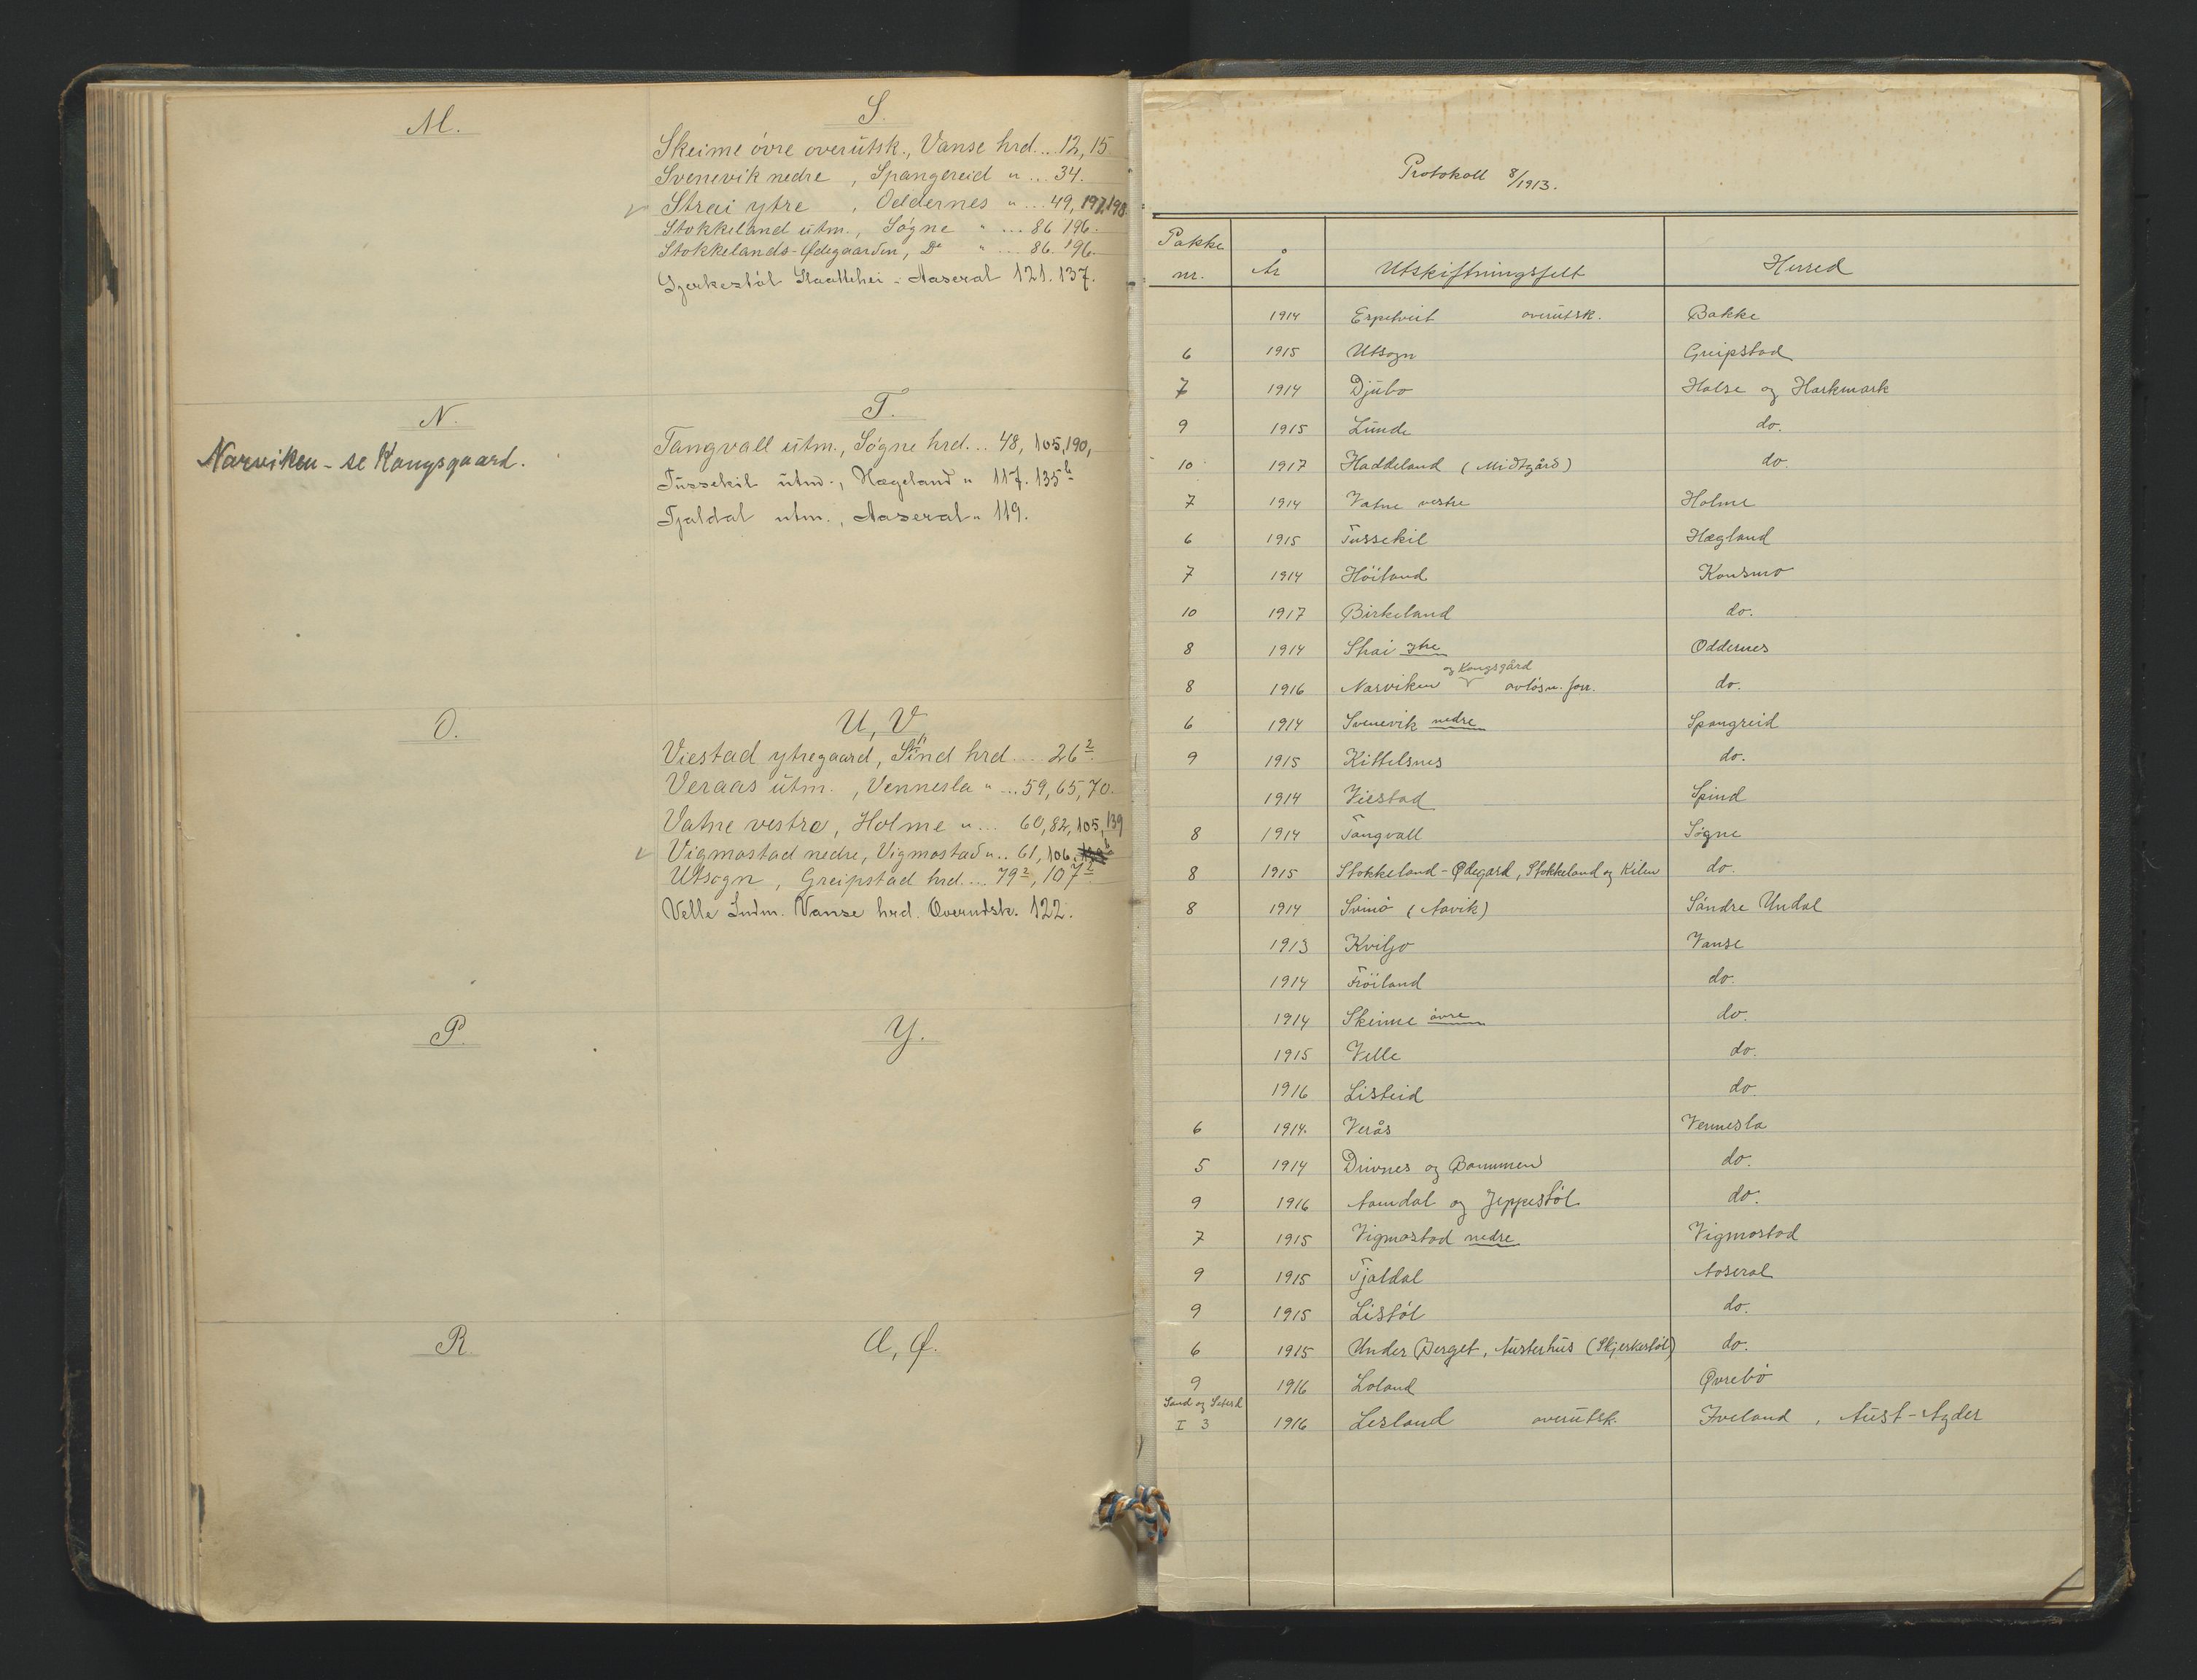 M.
N.
Narviken - se Kongsgaard.
O.
P.
R.
S.
Skeime øvre overutsk., Vanse hrd... 12, 15
Svenevik nedre , Spangereid " ... 34.
Strai ytre , Oddernes " ... 49, 197, 198
Stokkeland utm., Søgne " ... 86 196.
Stokkelands-Ødegaarden, Do " ... 86. 196.
Skaattehei - Aaseral 121. 137.
T.
Tangvall utm., Søgne hrd... 48, 105, 190,
Tussekil utm., Hægeland " 117. 135 b
Tjaldal utm., Aaseral " 119.
U, V
Viestad ytregaard, hrd.... 26 2
Veraas utm. , Vennesla " ... 59, 65, 70.
Vatne vestre, Holme " ... 60, 82, 105, 139
Vigmostad nedre, Vigmostad " .. 61, 106.
Utsogn , Greipstad hrd.... 79 2, 107 2
Velle Indm. Vanse hrd. Overudsk. 122.
Y.
Ø.
Protokoll 8/1913.
Pakke nr. År Utskiftningsfelt Herred
1914 Espetveit overutsk. Bakke
6 1915 Utsogn Greipstad
7 1914 Djubo Halse og Harkmark
9 1915 Lunde do.
10 1917 Haddeland (Midtgård) do.
7 1914 Vatne vestre Holme
6 1915 Tussekil Hægland
7 1914 Höiland Konsmo
10 1917 Birkeland do.
8 1914 Strai ytre Oddernes
8 1916 Narviken og Kongsgård avløsn. forr. do.
6 1914 Svenevik nedre Spangreid
9 1915 Kittelsnes do.
1914 Viestad Spind
8 1914 Tangvall Søgne
8 1915 Stokkeland-Ødegard, Stokkeland og Kilen do.
8 1914 Svinö (Aavik) Söndre Undal
1913 Kviljo Vanse
1914 Fröiland do.
1914 Skeime övre do.
1915 Velle do.
1916 Listeid do.
6 1914. Verås Vennesla
5 1914 Drivnes og Bommen do.
9 1916 Aamdal og Jeppestøl do.
7 1915 Vigmostad nedre Vigmostad
9 1915 Tjaldal Aaseral
9 1915 Listöl do.
6 1915 Under Berget, Austerhus (Skjerkestöl) do.
9 1916 Loland Øvrebö
Sand og Setesd
I 3 1916 Lesland overutsk. Iveland , Aust-Agder